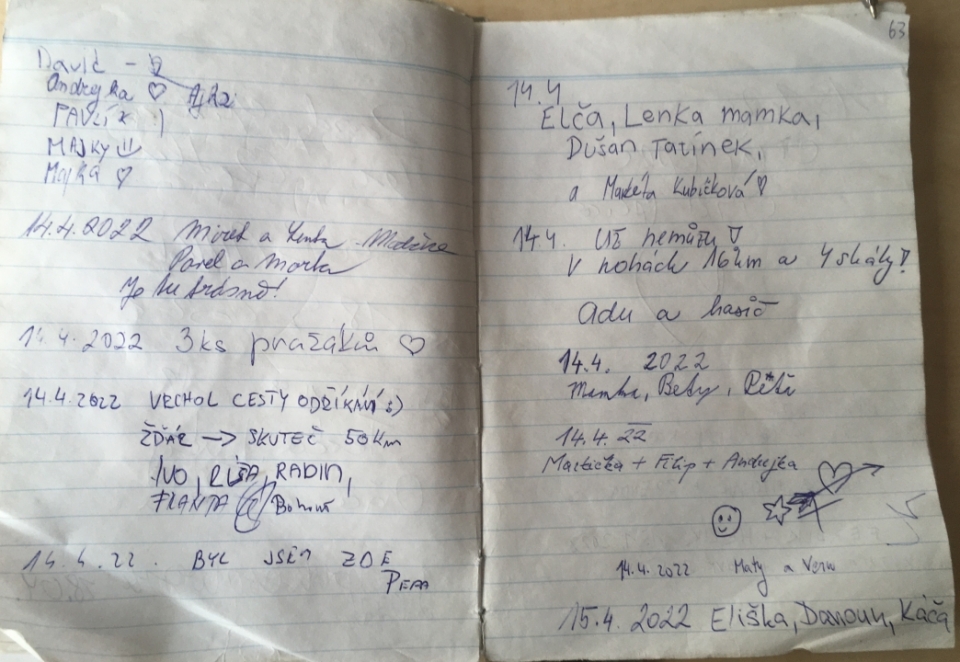 David -
Ondrejka ♡
PAVLÍK :)
MAJKY
Majka ♡
14.4.2022 Mirek a Lenka
Pavel a Marta
Je tu krásně!
14.4.2022 3ks pražáků ♡
14.4.2022 VRCHOL CESTY ODŘÍKÁNÍ :)
ŽĎÁR → SKUTEČ 50km
IVO, RÍŠA, RADIM,
FRANTA @ Bohouš
14.4.22. BYL JSEM ZDE
PEPA
63
14.4
Elča, Lenka mamka,
Dušan Tatínek,
a Markéta Kubíčková ♡
14.4. Už nemůžu
V nohách 16km a 4 skály!
Adu a hasič
14.4. 2022
Mamka, Beby,
14.4.22
Martička + Filip + Andrejka
14.4.2022 Maty a Veru
15.4. 2022 Eliška, Danoun, Káča